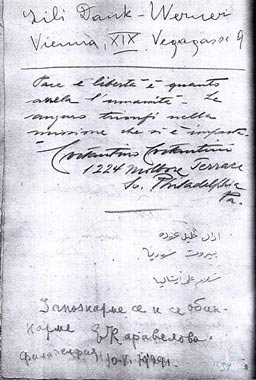 Lili Dank-Werner
Vienna, XIX. Vegagasse 9
Pace è libertà è quanto
anela l'umanità - Le
auguro trionfi nella
missione che si è imposta -
Costantino Costantini
1224 Terrace
So. Philadelphia
Pa.
خليل عوده
بيروت سوريا
Запознахме се и се обик-
нахме Каравелова.
1929